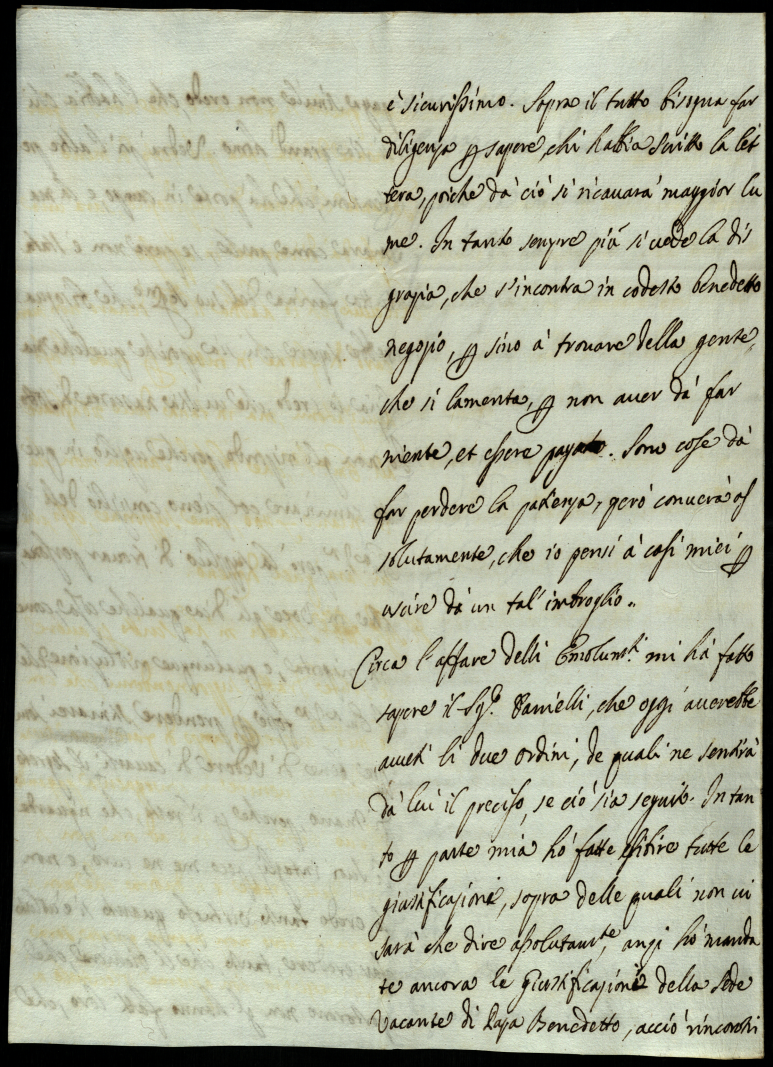 è sicurissimo. Sopra il tutto bisogna far
diligenza ꝑ sapere, chi habbia scritto la let
tera, poiche dà ciò si ricauarà maggior lu
me. In tanto sempre più si uede la dis
grazia, che s'incontra in codesto benedetto
negozio, ꝑ sino à trouare della gente,
che si lamenta, ꝑ non auer dà far
niente, et essere pagato. Sono cose dà
far perdere la pazienza, però conuerà as
solutamente, che io pensi à casi miei ꝑ
uscire dà un tal'imbroglio.
Circa l'affare delli Emolum.ti mi hà fatto
sapere il Sig.r Danielli, che oggi auerebbe
auuti li due ordini, de quali ne sentirà
dà lui il preciso, se ciò sia seguito. In tan
to ꝑ parte mia hò fatte esibire tutte le
giustificazioni, sopra delle quali non ui
sarà che dire assolutam.te, anzi hò manda
te ancora le Giustificazioni della Sede
Vacante di Papa Benedetto, acciò rincontri